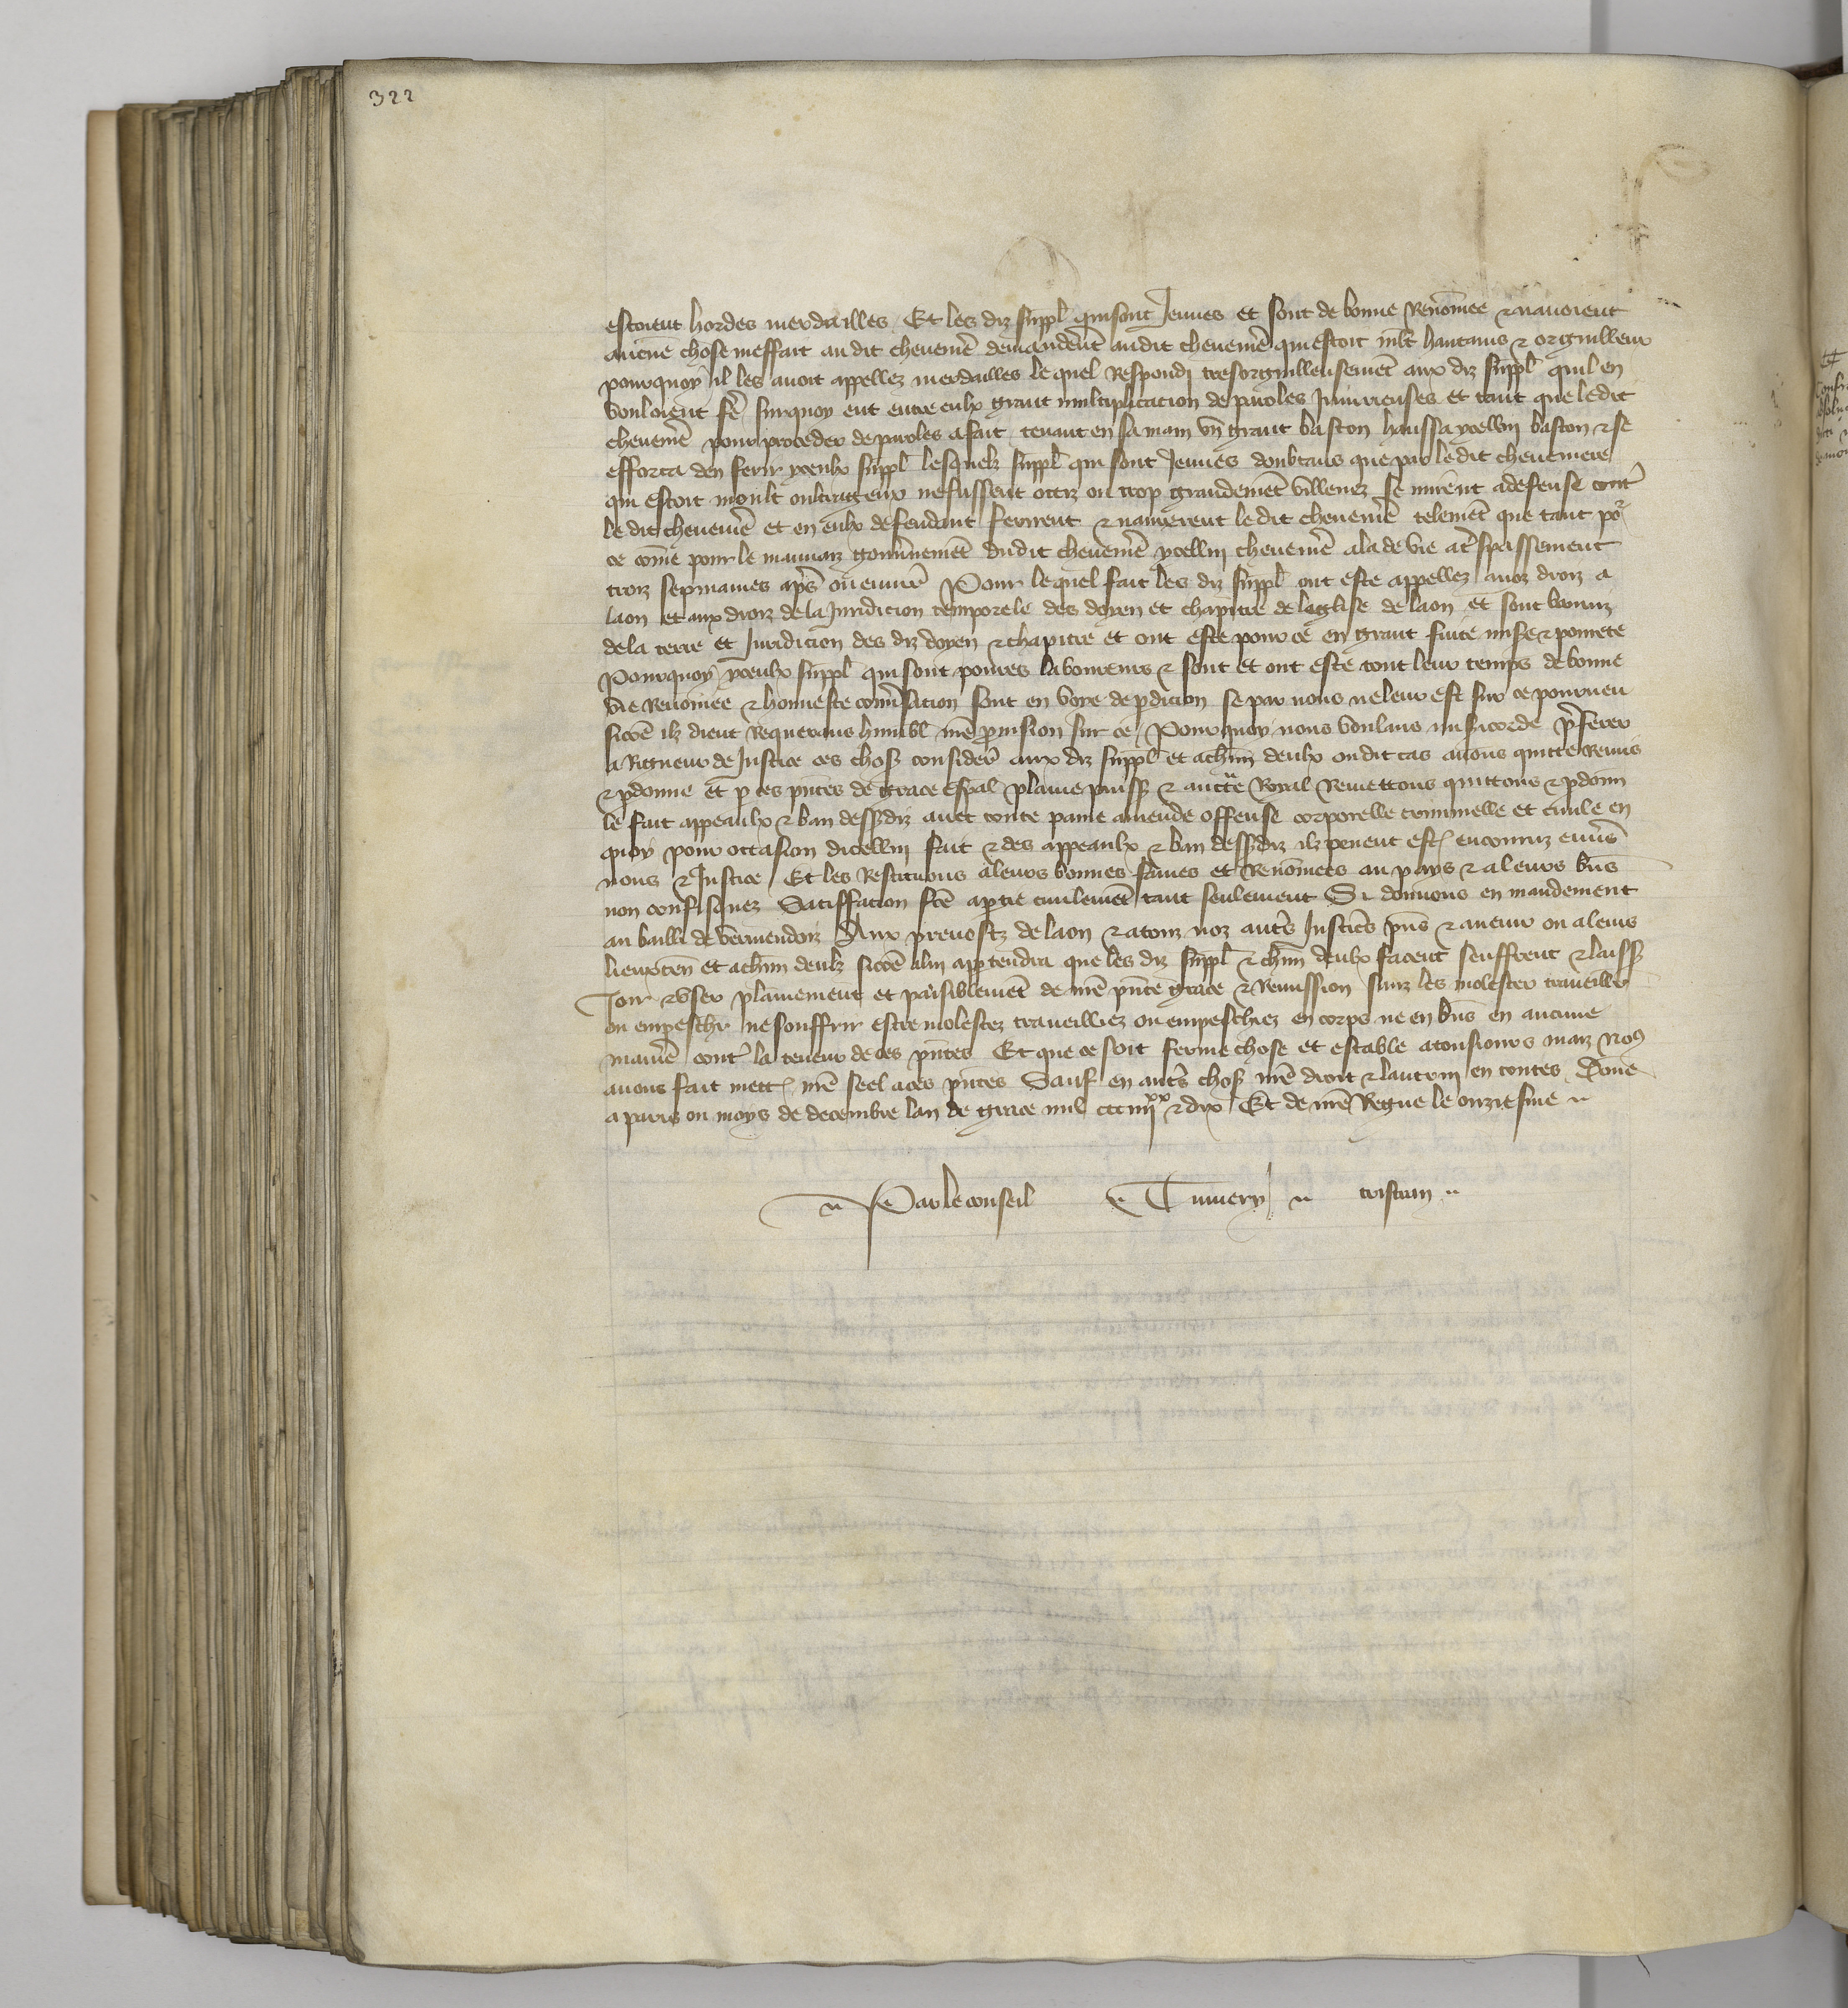 322
estoient hordes merdailles Et les diz suppl qui sont Jeunes et sont de bonne Renomee & navoient
aucune chose meffait au dit chevenere demanderent audit chevenere qui estoit mlt hautains & orguilleux
pourquoy il les avoit appellez merdailles le quel Respondi tresorguilleusement aux diz suppl quil en
vouloient fe surquoy eut entre eulx grant multiplicacion de paroles Iniurieuses et tant que le dit
chevenere pour proceder de paroles a fait tenant en sa main vn grant baston haussa ycellui baston & se
efforca den ferir yceulx suppl lesquelz suppl qui sont Jeunes doubtans que par le dit chevenere
qui estoit moult oultrageux ne fussent occiz ou trop grandemet villenez se mirent a defense cont
le dit chevenere et en eulx defendant ferirent & navrerent le dit chevenere telemet que tant po
ce come pour le mauvaiz gouvnemet dudit chevenere ycellui chevenere ala de vie a tspassement
troiz sepmaines aps ou environ Pour le quel fait les diz suppl ont este appellez a noz droiz a
laon et aux droiz de la Juridicion temporele des doyen et chapitre de leglise de laon et sont banniz
de la terre et Juridicion des diz doyen & chapitre et ont este pour ce en grant fuite mise & povrete
Pourquoy yceulx suppl qui sont povres laboureurs & sont et ont este tout leur temps de bonne
vie Renomee & honneste convsacion sont en voye de pdicion se par nous ne leur est sur ce pourveu
sicoe ilz dient Requerans humbl nre provision sur ce Pourquoy nous voulans misicorde pferer
a Rigueur de Justice ces choses consider aux diz suppl et a chun deulx ou dit cas avons quitte Remis
& pdonne et p ces pntes de grace espal plaine puiss & aucte Royal Remettons quittons & pdonn
le fait appeaulx & ban dessdiz avec toute paine amende offense corporelle criminelle et civile en
quoy pour occasion dicellui fait & des appeaulx & ban dessdiz ilz pevent est encouruz envs
nous & Justice Et les Restituons a leurs bonnes fames et Renomees au pays & a leurs bns
non confisquez Satiffacion fce a ptie civilemet tant seulement Si donnons en mandement
au bailli de vermendoiz Aux prevostz de laon & a touz noz auts Justiciers pns & avenir ou a leurs
lieuxten et a chun deulz sicoe a lui apptendra que les diz suppl & chun deulx facent seuffrent & laiss
Joir & vser plainement et paisiblemet de nre pnte grace & Remission sanz les molester traveiller
ou empescher ne souffrir estre molestez traveilliez ou empeschiez en corps ne en bns en aucune
maniere cont la teneur de ces pntes Et que ce soit ferme chose et estable a tousiours maiz Nous
avons fait mett nre seel a ces pntes Sauf en auts choses nre droit & lautrui en toutes Done
a paris ou moys de decembre lan de grace mil ccc iiijxx & dix Et de nre Regne le onziesme
Par le conseil Tumery tristran